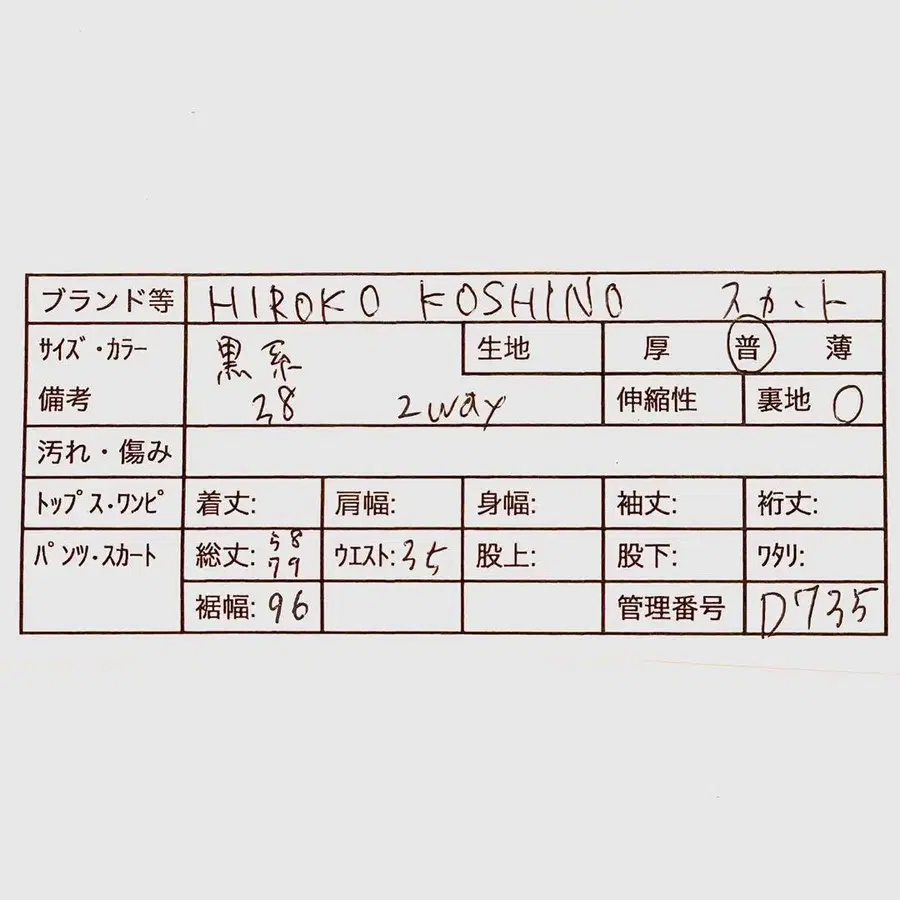 ブランド等 HIROKO KOSHINO スカート
サイズ・カラー 黒系 生地 厚 普 薄
備考 38 2way 伸縮性 裏地 ○
汚れ・傷み
トップス・ワンピ 着丈: 肩幅: 身幅: 袖丈: 裄丈:
パンツ・スカート 総丈: 58 79 ウエスト: 35 股上: 股下: ワタリ:
裾幅: 96 管理番号 D735